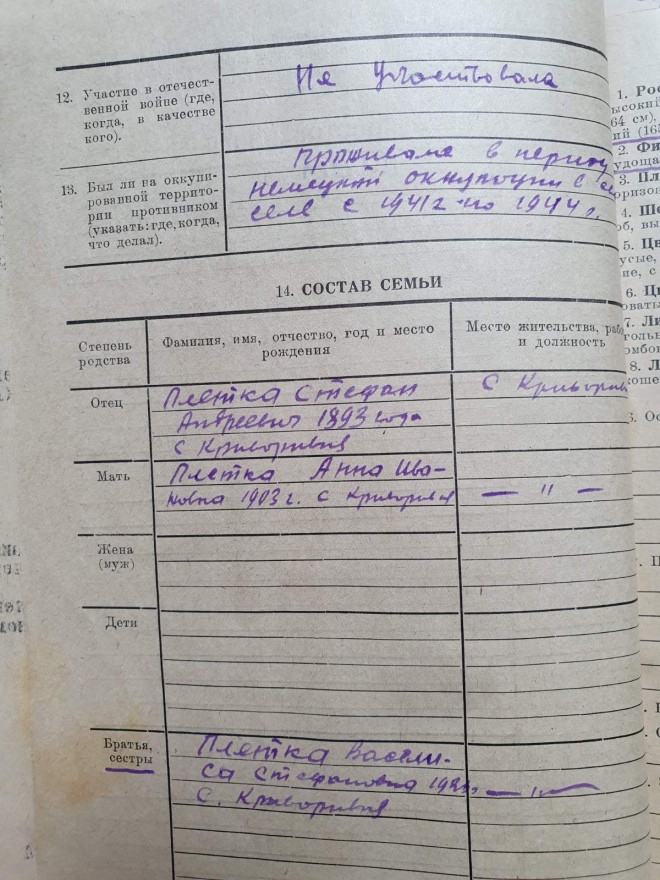 12. Участие в отечест-
венной войне (где,
когда, в качестве
кого).
Не участвовала
13. Был ли на оккупи-
рованной террито-
рии противником
(указать: где, когда,
что делал).
Проживала в период
немецкой оккупации в
селе с 1941 г по 1944 г.
14. СОСТАВ СЕМЬИ
Степень
родства
Фамилия, имя, отчество, год и место
рождения
Место жительства,
и должность
Отец
Плетка Стефан
Андреевич 1893 года
с Криворивня
с
Мать
Плетка Анна Ива-
новна 1903 г. с Криворивня
— " —
Жена
(муж)
Дети
Братья,
сестры
Плетка Васили-
са Стефановна
с. Криворивня
— " —
1.
64 см),
2.
3.
4.
5.
6.
7.
8.